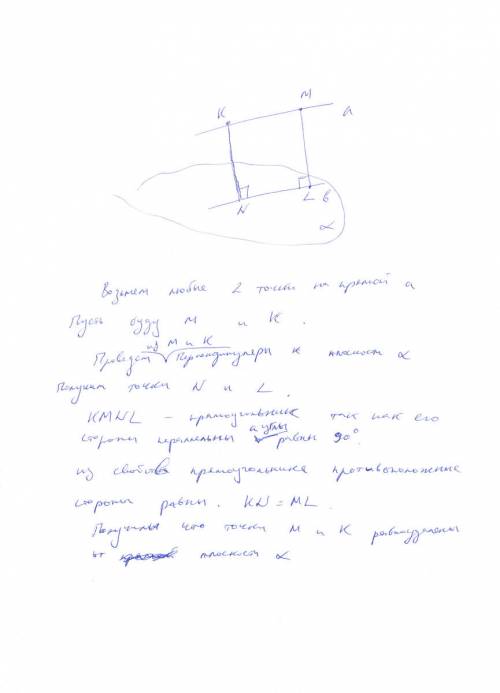 K M a
N L b
α
Возьмем любые 2 точки на прямой a
Пусть буду M и K .
из M и K
Проведем перпендикуляры к плоскости α
Получим точки N и L .
KMNL – прямоугольник так как его
стороны параллельны а углы равны 90°
из свойства прямоугольника противоположные
стороны равны . KN = ML .
Получили что точки M и K равноудалены
от плоскости α